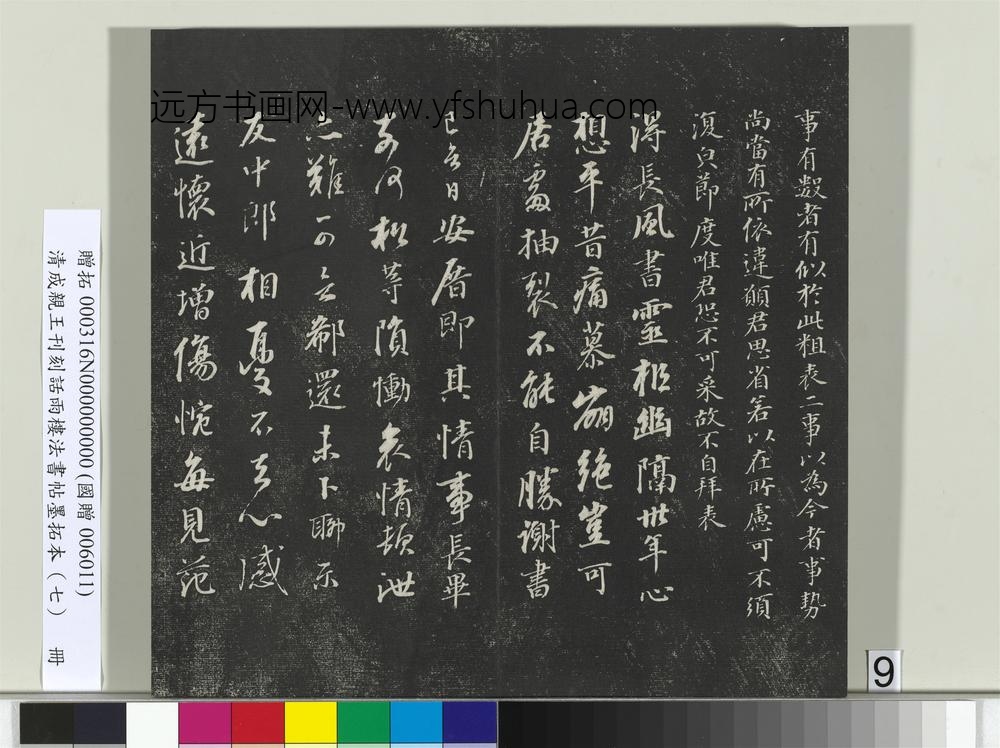 远方书画网-www.yfshuhua.com
事有數者有似於此粗表二事以為今者事勢
尚當有所依違願君思省若以在所慮可不須
復與節度唯君恐不可采故不自拜表
得長風書靈柩幽隔卅年心
想平昔痛慕崩絕豈可
居處抽裂不能自勝謝書
已至日安厝即其情事長畢
奈何松等隕慟哀情頓泄
亦難可言鄰還未下聊示
友中郎相憂不去心感
遠懷近增傷惋每見范
贈拓 000316N000000000(國贈 006011)
清成親王刊刻話雨樓法書帖墨拓本(七) 冊
9